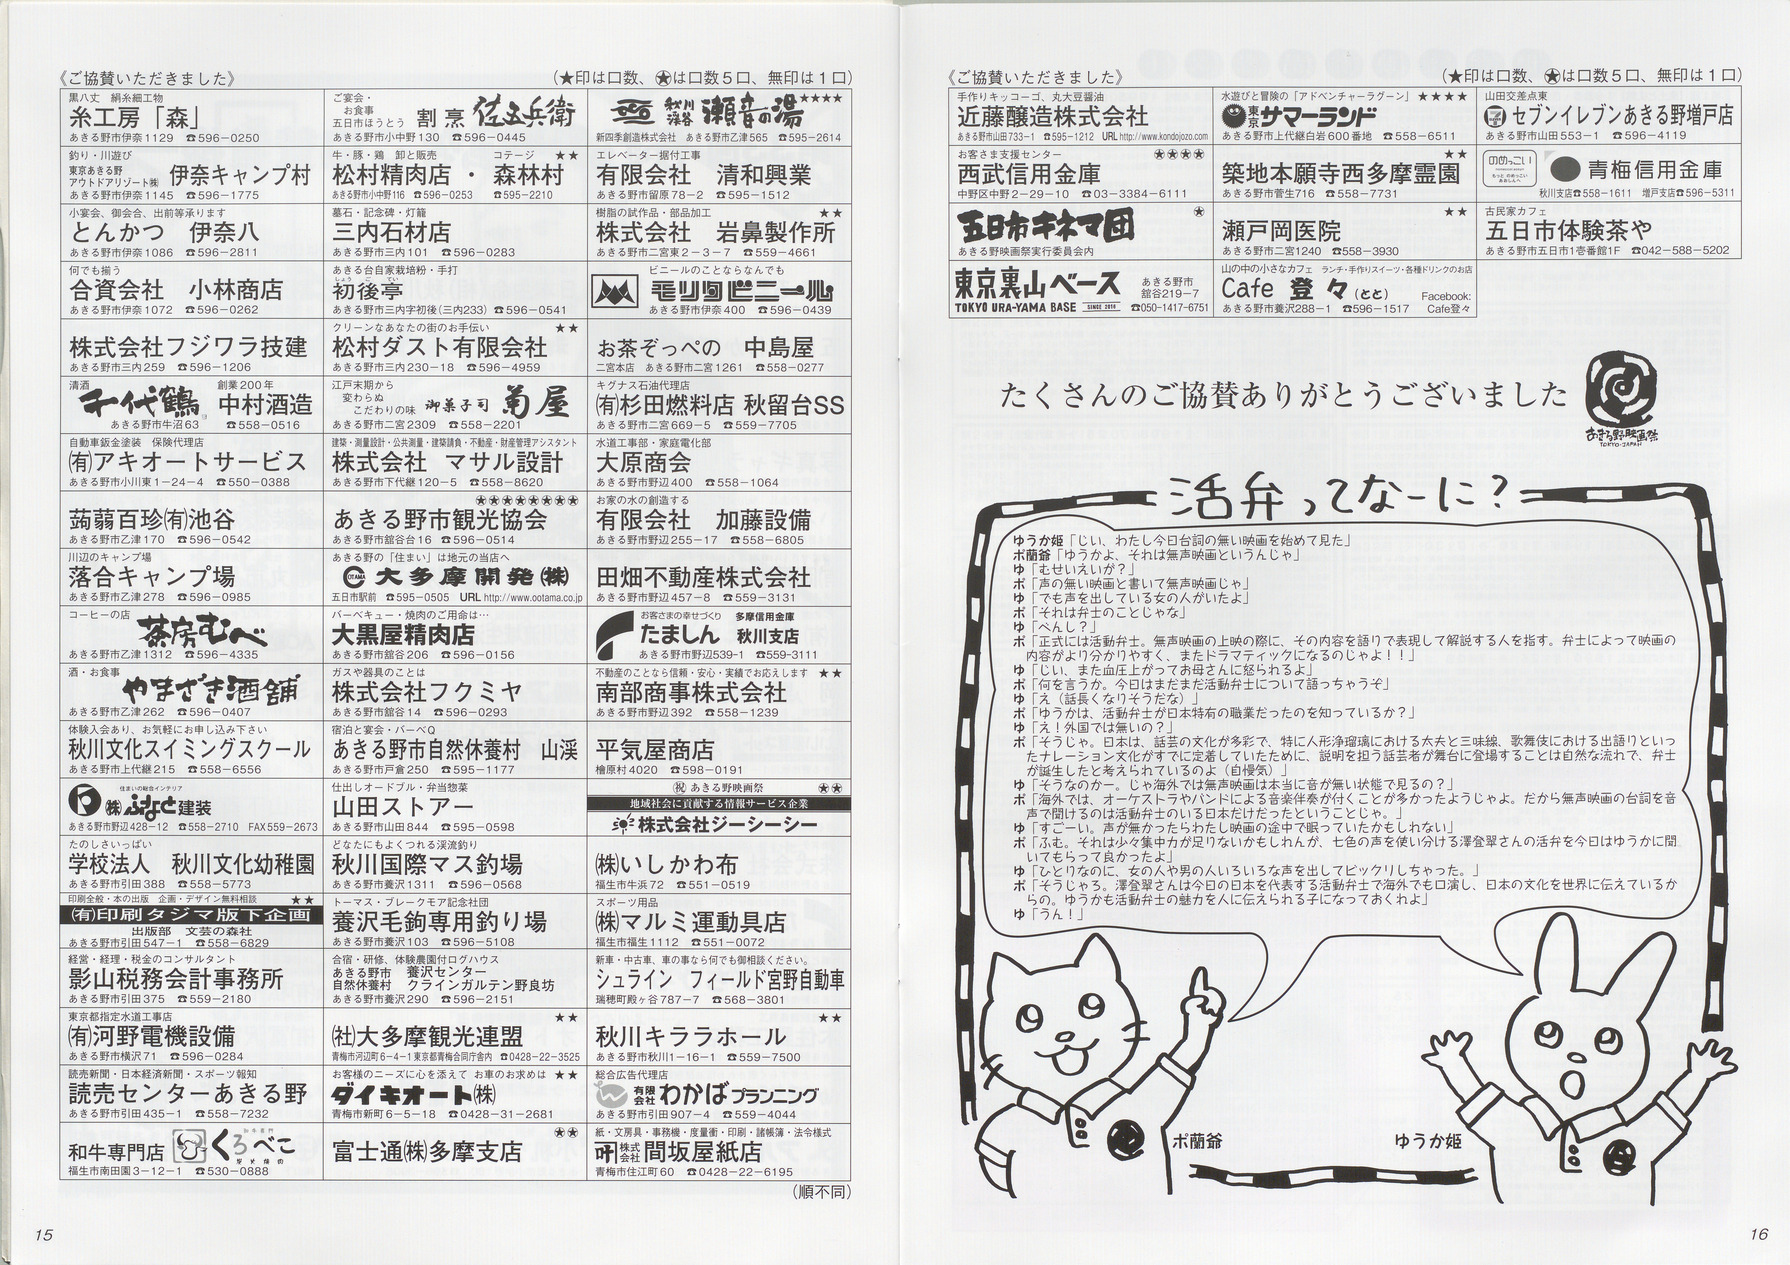 《ご協賛いただきました》
(★印は口数、✪は口数5口、無印は1口)
黒八丈　絹糸細工物
糸工房「森」
あきる野市伊奈1129　☎596-0250
ご宴会・
お食事
五日市ほうとう　割烹　佐五兵衛
あきる野市小中野130　☎596-0445
秋川渓谷　瀬音の湯　★★★★
新四季創造株式会社　あきる野市乙津565　☎595-2614
釣り・川遊び
東京あきる野
アウトドアリゾート㈱　伊奈キャンプ村
あきる野市伊奈1145　☎596-1775
牛・豚・鶏　卸と販売　コテージ　★★
松村精肉店・森林村
あきる野市小中野116　☎596-0253　☎595-2210
エレベーター据付工事
有限会社　清和興業
あきる野市留原78-2　☎595-1512
小宴会、御会合、出前等承ります
とんかつ　伊奈八
あきる野市伊奈1086　☎596-2811
墓石・記念碑・灯籠
三内石材店
あきる野市三内101　☎596-0283
樹脂の試作品・部品加工　★★
株式会社　岩鼻製作所
あきる野市二宮東2-3-7　☎559-4661
何でも揃う
合資会社　小林商店
あきる野市伊奈1072　☎596-0262
あきる台自家栽培粉・手打
初後亭
あきる野市三内字初後(三内233)　☎596-0541
ビニールのことならなんでも
モリタビニール
あきる野市伊奈400　☎596-0439
株式会社フジワラ技建
あきる野市三内259　☎596-1206
クリーンなあなたの街のお手伝い　★★
松村ダスト有限会社
あきる野市三内230-18　☎596-4959
お茶ぞっぺの　中島屋
二宮本店　あきる野市二宮1261　☎558-0277
清酒　創業200年
千代鶴　中村酒造
あきる野市牛沼63　☎558-0516
江戸末期から
変わらぬ
こだわりの味　御菓子司　菊屋
あきる野市二宮2309　☎558-2201
キグナス石油代理店
㈲杉田燃料店 秋留台SS
あきる野市二宮669-5　☎559-7705
自動車鈑金塗装　保険代理店
㈲アキオートサービス
あきる野市小川東1-24-4　☎550-0388
建築・測量設計・公共測量・建築請負・不動産・財産管理アシスタント
株式会社　マサル設計
あきる野市下代継120-5　☎558-8620
水道工事部・家庭電化部
大原商会
あきる野市野辺400　☎558-1064
蒟蒻百珍㈲池谷
あきる野市乙津170　☎596-0542
✪✪✪✪✪✪✪✪
あきる野市観光協会
あきる野市舘谷台16　☎596-0514
お家の水の創造する
有限会社　加藤設備
あきる野市野辺255-17　☎558-6805
川辺のキャンプ場
落合キャンプ場
あきる野市乙津278　☎596-0985
あきる野の「住まい」は地元の当店へ
OOTAMA　大多摩開発㈱
五日市駅前　☎595-0505　URL http://www.ootama.co.jp
田畑不動産株式会社
あきる野市野辺457-8　☎559-3131
コーヒーの店
茶房むべ
あきる野市乙津1312　☎596-4335
バーベキュー・焼肉のご用命は…
大黒屋精肉店
あきる野市舘谷206　☎596-0156
お客さまの幸せづくり　多摩信用金庫
たましん　秋川支店
あきる野市野辺539-1　☎559-3111
酒・お食事
やまざき酒舗
あきる野市乙津262　☎596-0407
ガスや器具のことは
株式会社フクミヤ
あきる野市舘谷14　☎596-0293
不動産のことなら信頼・安心・実績でお応えします　★★
南部商事株式会社
あきる野市野辺392　☎558-1239
体験入会あり、お気軽にお申し込み下さい
秋川文化スイミングスクール
あきる野市上代継215　☎558-6556
宿泊と宴会・バーベQ
あきる野市自然休養村　山渓
あきる野市戸倉250　☎595-1177
平気屋商店
檜原村4020　☎598-0191
住まいの総合インテリア
㈱ふるさと建装
あきる野市野辺428-12　☎558-2710　FAX559-2673
仕出しオードブル・弁当惣菜
山田ストアー
あきる野市山田844　☎595-0598
㊗ あきる野映画祭　✪✪
地域社会に貢献する情報サービス企業
株式会社ジーシーシー
たのしさいっぱい
学校法人　秋川文化幼稚園
あきる野市引田388　☎558-5773
どなたにもよくつれる渓流釣り
秋川国際マス釣場
あきる野市養沢1311　☎596-0568
㈱いしかわ布
福生市牛浜72　☎551-0519
印刷全般・本の出版　企画・デザイン無料相談　★★
㈲印刷タジマ版下企画
出版部　文芸の森社
あきる野市引田547-1　☎558-6829
トーマス・ブレークモア記念社団
養沢毛鉤専用釣り場
あきる野市養沢103　☎596-5108
スポーツ用品
㈱マルミ運動具店
福生市福生1112　☎551-0072
経営・経理・税金のコンサルタント
影山税務会計事務所
あきる野市引田375　☎559-2180
合宿・研修、体験農園付ログハウス
あきる野市　養沢センター
自然休養村　クラインガルテン野良坊
あきる野市養沢290　☎596-2151
新車・中古車、車の事なら何でも御相談ください。
シュライン　フィールド宮野自動車
瑞穂町殿ヶ谷787-7　☎568-3801
東京都指定水道工事店
㈲河野電機設備
あきる野市横沢71　☎596-0284
★★
㈳大多摩観光連盟
青梅市河辺町6-4-1東京都青梅合同庁舎内　☎0428-22-3525
★★
秋川キララホール
あきる野市秋川1-16-1　☎559-7500
読売新聞・日本経済新聞・スポーツ報知
読売センターあきる野
あきる野市引田435-1　☎558-7232
お客様のニーズに心を添えて　お車のお求めは　★★
ダイキオート㈱
青梅市新町6-5-18　☎0428-31-2681
総合広告代理店
有限会社わかばプランニング
あきる野市引田907-4　☎559-4044
和牛専門店　くろべこ
福生市南田園3-12-1　☎530-0888
✪✪
富士通㈱多摩支店
紙・文房具・事務機・度量衡・印刷・諸帳簿・法令様式
株式会社間坂屋紙店
青梅市住江町60　☎0428-22-6195
(順不同)
15
《ご協賛いただきました》
(★印は口数、✪は口数5口、無印は1口)
手作りキッコーゴ、丸大豆醤油
近藤醸造株式会社
あきる野市山田733-1　☎595-1212　URL http://www.kondojozo.com
水遊びと冒険の「アドベンチャーラグーン」　★★★★
東京サマーランド
あきる野市上代継白岩600番地　☎558-6511
山田交差点東
セブンイレブンあきる野増戸店
あきる野市山田553-1　☎596-4119
お客さま支援センター　✪✪✪✪
西武信用金庫
中野区中野2-29-10　☎03-3384-6111
★★
築地本願寺西多摩霊園
あきる野市菅生716　☎558-7731
のめっこい
青梅信用金庫
秋川支店☎558-1611　増戸支店☎596-5311
✪
五日市キネマ団
あきる野映画祭実行委員会内
★★
瀬戸岡医院
あきる野市二宮1240　☎558-3930
古民家カフェ
五日市体験茶や
あきる野市五日市1壱番館1F　☎042-588-5202
東京裏山ベース　あきる野市
舘谷219-7
TOKYO URA-YAMA BASE　SINCE 2016　☎050-1417-6751
山の中の小さなカフェ　ランチ・手作りスイーツ・各種ドリンクのお店
Cafe 登々(とと)　Facebook:
あきる野市養沢288-1　☎596-1517　Cafe登々
たくさんのご協賛ありがとうございました
あきる野映画祭
TOKYO・JAPAN
活弁ってなーに？
ゆうか姫「じい、わたし今日台詞の無い映画を始めて見た」
ポ蘭爺「ゆうかよ、それは無声映画というんじゃ」
ゆ「むせいえいが？」
ポ「声の無い映画と書いて無声映画じゃ」
ゆ「でも声を出している女の人がいたよ」
ポ「それは弁士のことじゃな」
ゆ「べんし？」
ポ「正式には活動弁士。無声映画の上映の際に、その内容を語りで表現して解説する人を指す。弁士によって映画の
内容がより分かりやすく、またドラマティックになるのじゃよ！！」
ゆ「じい、また血圧上がってお母さんに怒られるよ」
ポ「何を言うか。今日はまだまだ活動弁士について語っちゃうぞ」
ゆ「え（話長くなりそうだな）」
ポ「ゆうかは、活動弁士が日本特有の職業だったのを知っているか？」
ゆ「え！外国では無いの？」
ポ「そうじゃ。日本は、話芸の文化が多彩で、特に人形浄瑠璃における太夫と三味線、歌舞伎における出語りといっ
たナレーション文化がすでに定着していたために、説明を担う話芸者が舞台に登場することは自然な流れで、弁士
が誕生したと考えられているのよ（自慢気）」
ゆ「そうなのかー。じゃ海外では無声映画は本当に音が無い状態で見るの？」
ポ「海外では、オーケストラやバンドによる音楽伴奏が付くことが多かったようじゃよ。だから無声映画の台詞を音
声で聞けるのは活動弁士のいる日本だけだったということじゃ。」
ゆ「すごーい。声が無かったらわたし映画の途中で眠っていたかもしれない」
ポ「ふむ。それは少々集中力が足りないかもしれんが、七色の声を使い分ける澤登翠さんの活弁を今日はゆうかに聞
いてもらって良かったよ」
ゆ「ひとりなのに、女の人や男の人いろいろな声を出してビックリしちゃった。」
ポ「そうじゃろ。澤登翠さんは今日の日本を代表する活動弁士で海外でも口演し、日本の文化を世界に伝えているか
らの。ゆうかも活動弁士の魅力を人に伝えられる子になっておくれよ」
ゆ「うん！」
ポ蘭爺
ゆうか姫
16